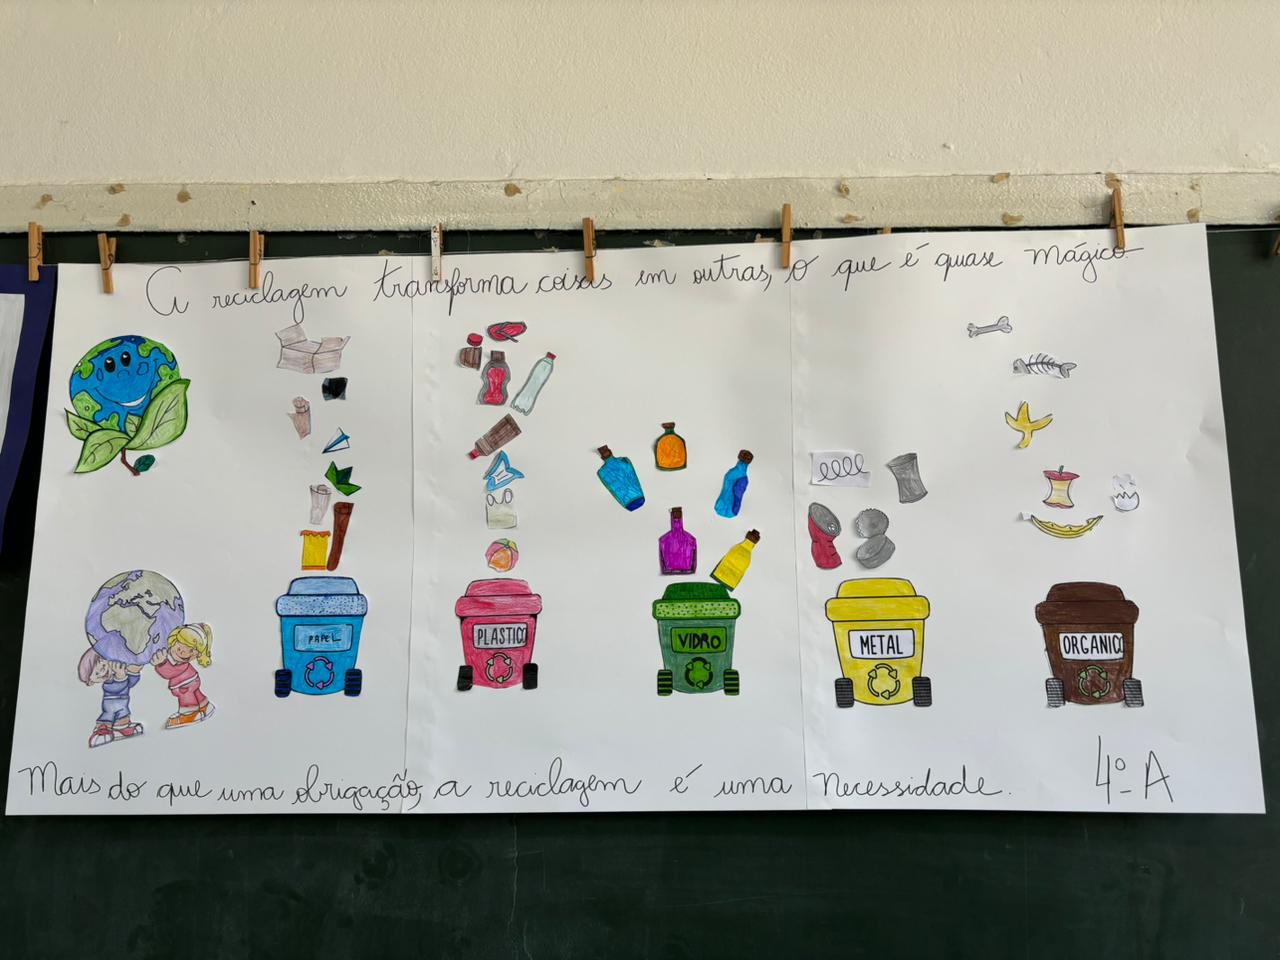 A reciclagem transforma coisas em outras, o que é quase mágico
PAPEL
PLASTICO
VIDRO
METAL
ORGANICO
Mais do que uma obrigação, a reciclagem é uma necessidade.
4º A